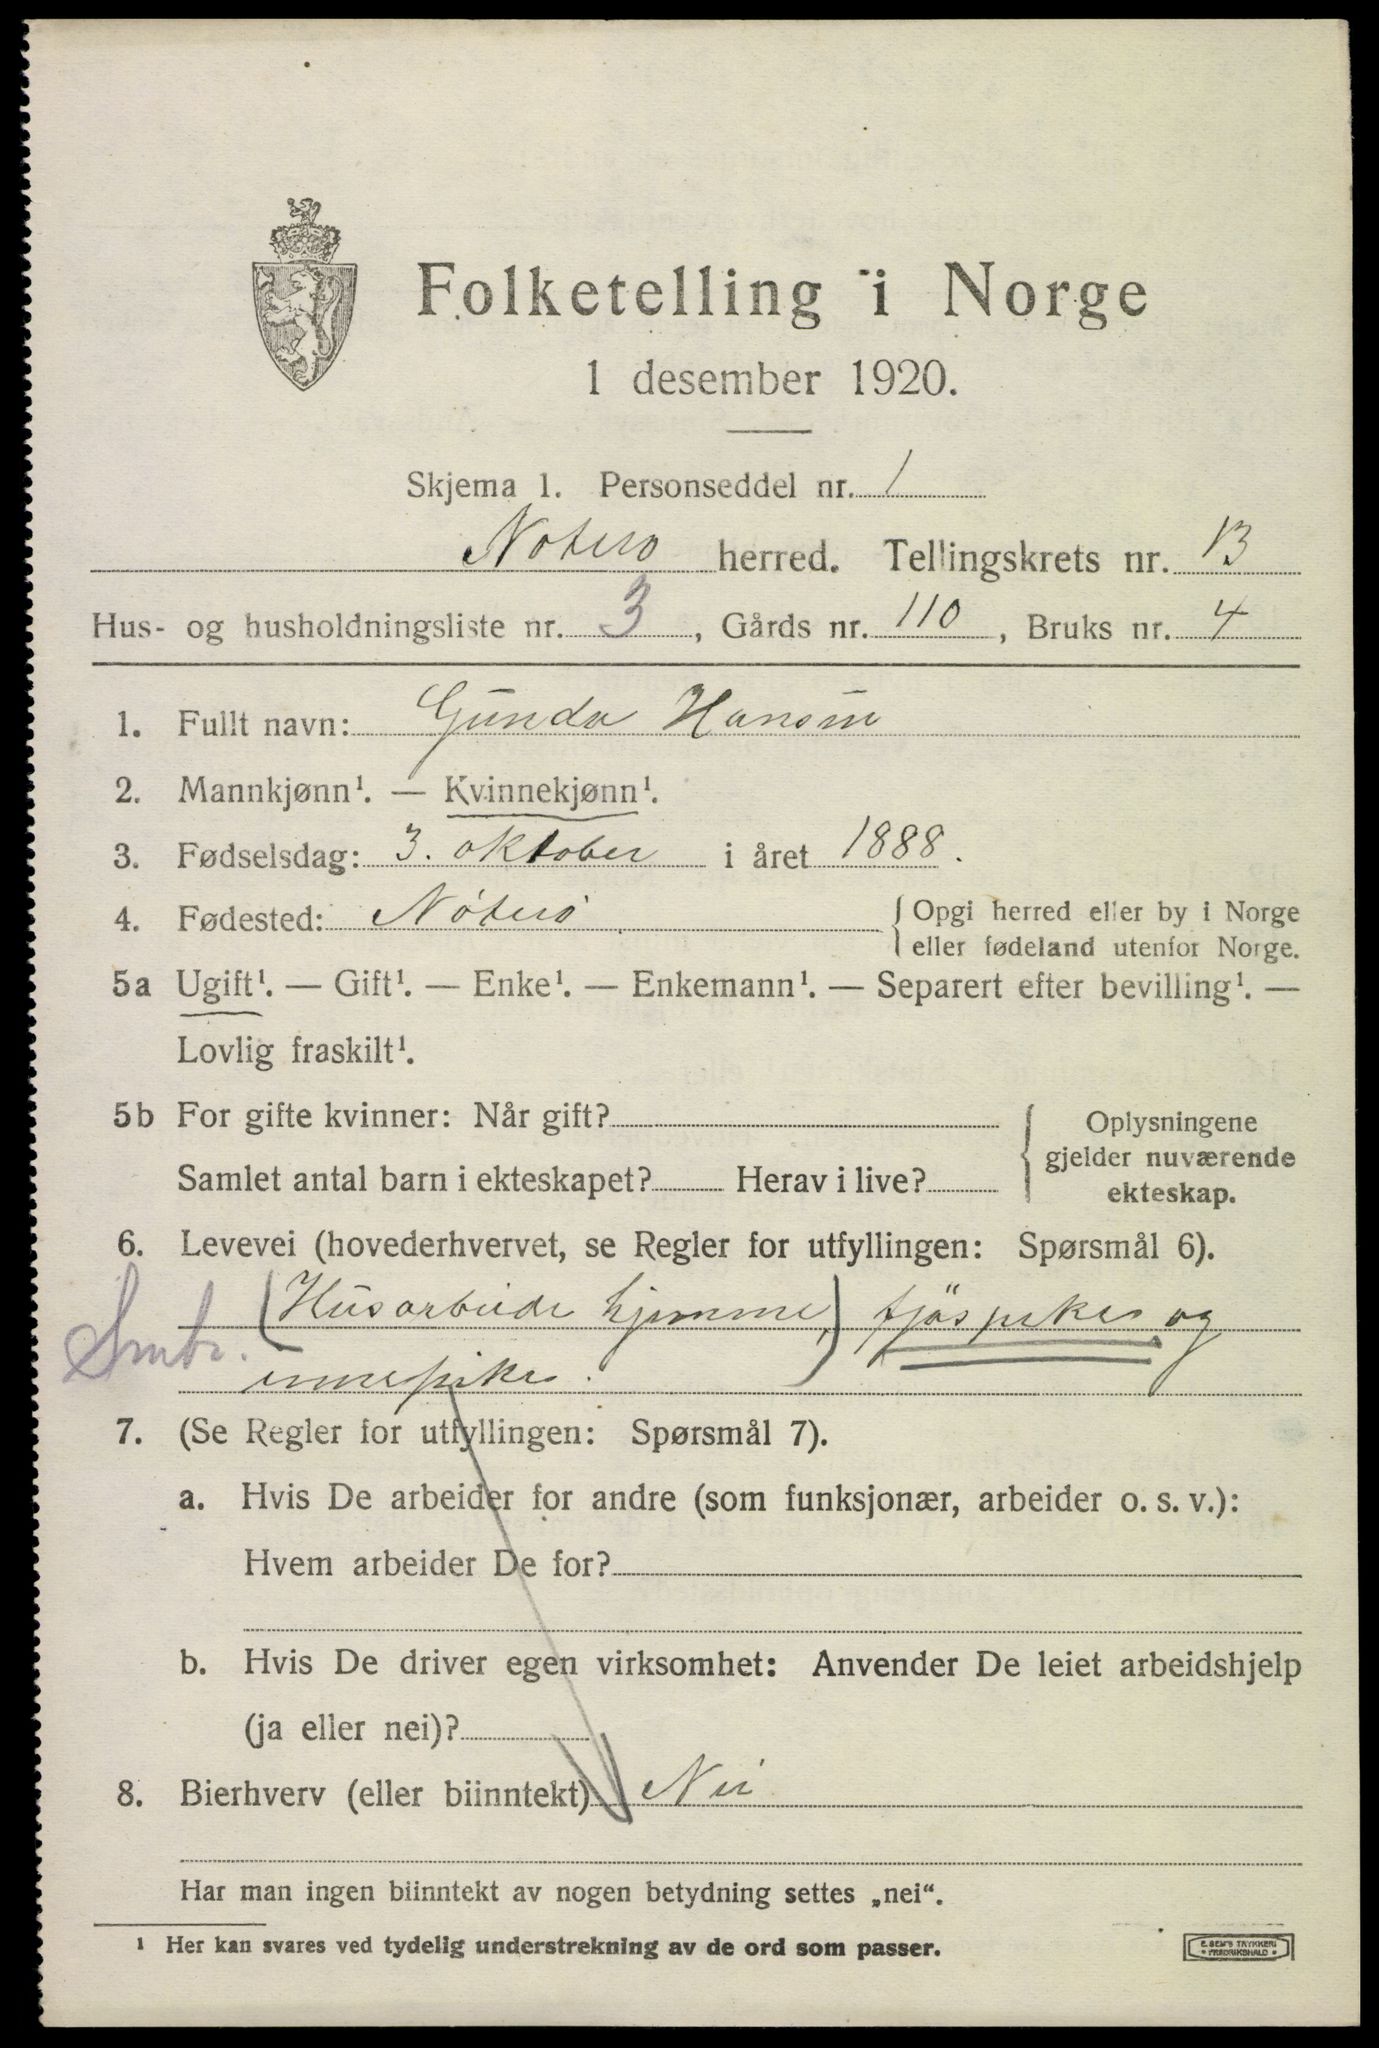 Folketelling i Norge
1 desember 1920.
Skjema 1. Personseddel nr. 1
Nøterø herred. Tellingskrets nr. 13
Hus- og husholdningsliste nr. 3, Gårds nr. 110, Bruks nr. 4
1. Fullt navn: Gunda Hansen
2. Mannkjønn¹. — Kvinnekjønn¹.
3. Fødselsdag: 3. oktober i året 1888.
4. Fødested: Nøterø { Opgi herred eller by i Norge
eller fødeland utenfor Norge.
5a Ugift¹. — Gift¹. — Enke¹. — Enkemann¹. — Separert efter bevilling¹. —
Lovlig fraskilt¹.
5b For gifte kvinner: Når gift?
Samlet antal barn i ekteskapet? Herav i live?
{ Oplysningene
gjelder nuværende
ekteskap.
6. Levevei (hovederhvervet, se Regler for utfyllingen: Spørsmål 6).
(Husarbeide hjemme,) fjøspike og
Smbr. innepike.
7. (Se Regler for utfyllingen: Spørsmål 7).
a. Hvis De arbeider for andre (som funksjonær, arbeider o. s. v.):
Hvem arbeider De for?
b. Hvis De driver egen virksomhet: Anvender De leiet arbeidshjelp
(ja eller nei)?
8. Bierhverv (eller biinntekt) Nei
Har man ingen biinntekt av nogen betydning settes „nei“.
¹ Her kan svares ved tydelig understrekning av de ord som passer.
E. SEM'S TRYKKERI
• FREDRIKSHALD •